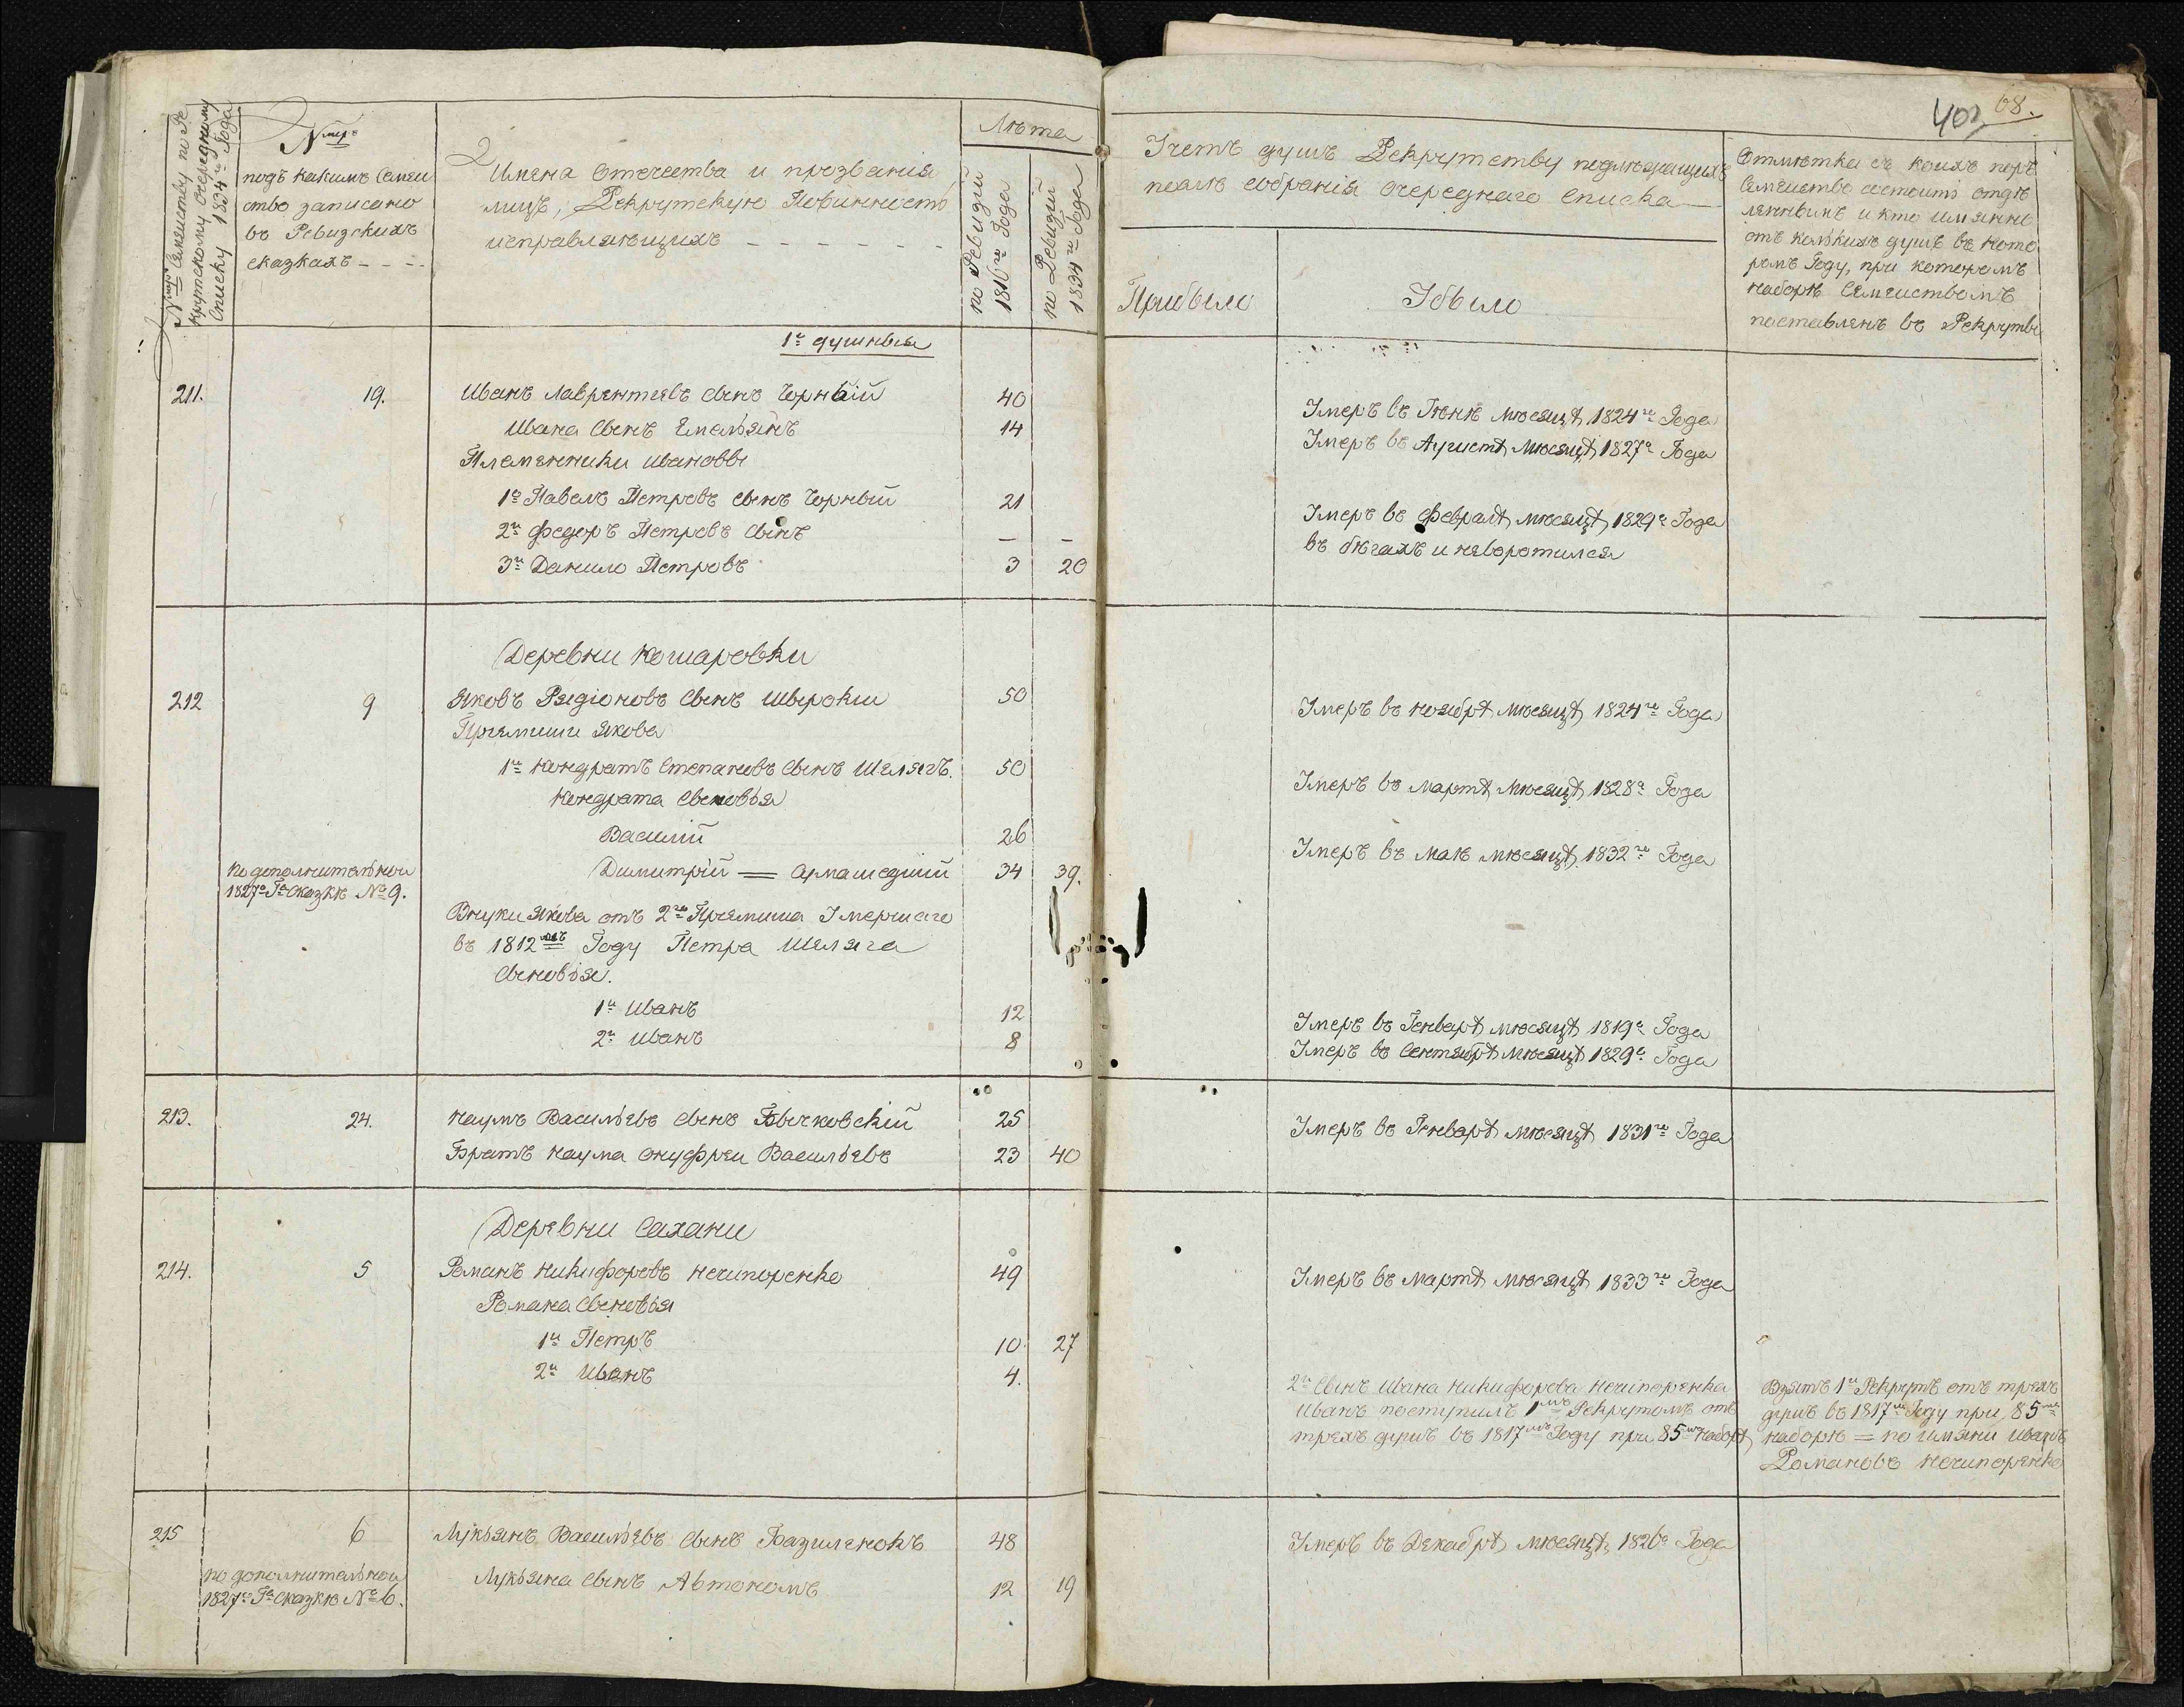 402 68.
Nмеръ Семейству по Ре
крутскому очередному
Списку 1834го Года
Nмеръ
подъ какимъ Семей
ство записано
въ Ревизскихъ
сказкахъ
Имена Отечества и прозвания
лицъ, Рекрутскую Повинность
исправляющихъ
Лѣта
по Ревизіи
1816го Года
по Ревизіи
1834го Года
Учетъ душъ Рекрутству подлежащихъ
послѣ собранія очереднаго списка
Прибыло
Убыло
Отмѣтка съ коихъ поръ
Семейство состоитъ отдѣ
леннымъ и кто имянно
отъ колькихъ душъ въ кото
ромъ Году, при которомъ
наборѣ Семействомъ
поставленъ въ Рекруты
1е душныя
211. 19. Иванъ Лаврентіевъ сынъ Чорный 40 Умеръ въ Іюнѣ мѣсяцѣ 1824го Года
Ивана Сынъ Емельянъ 14 Умеръ въ Августѣ мѣсяцѣ 1827го Года
Племянники Ивановы
1й Павелъ Петровъ сынъ Чорный 21 Умеръ въ Февралѣ мѣсяцѣ 1829го Года
2й Федоръ Петровъ Сынъ — — въ бѣгахъ и неворотился
3й Данило Петровъ 3 20
Деревни Кошаровки
212 9 Яковъ Радіоновъ Сынъ Шырокій 50 Умеръ въ Ноябрѣ мѣсяцѣ 1824го Года
Пріемыши Якова
1й Кондратъ Степановъ Сынъ Шелягъ. 50 Умеръ въ мартѣ мѣсяцѣ 1828го Года
Кондрата Сыновья
Василій 26 Умеръ въ маѣ мѣсяцѣ 1832го Года
по дополнительной
1827го Го Сказкѣ №9.
Димитрій = 34 39.
Внуки Якова отъ 2го Пріемыша Умершаго
въ 1812мъ Году Петра Шеляга
Сыновья.
1й Иванъ 12 Умеръ въ Генварѣ мѣсяцѣ 1819го Года
2й Иванъ 8 Умеръ въ Сентябрѣ мѣсяцѣ 1829го Года
213. 24. Наумъ Васильевъ Сынъ Бычковскій 25 Умеръ въ Генварѣ мѣсяцѣ 1831го Года
Братъ Наума Онуфрей Васильевъ 23 40
Деревни Сахани
214. 5 Романъ Никифоровъ Нечипоренко 49 Умеръ въ Мартѣ мѣсяцѣ 1833го Года
Романа Сыновья
1й Петръ 10 27
2й Иванъ 4.
2й Сынъ Ивана Никифорова Нечипоренка
Иванъ поступилъ 1мъ Рекрутомъ отъ
трехъ душъ въ 1817мъ Году при 85мъ Наборѣ
Взятъ 1й Рекрутъ отъ трехъ
душъ въ 1817мъ Году при 85мъ
наборѣ = по имяни Иванъ
Романовъ Нечипоренко
215 6 Лукьянъ Васильевъ Сынъ Базиленокъ 48 Умеръ въ Декабрѣ мѣсяцѣ 1826го Года
по дополнительной
1827го Го Сказкѣ №6.
Лукьяна Сынъ Автономъ 12 19